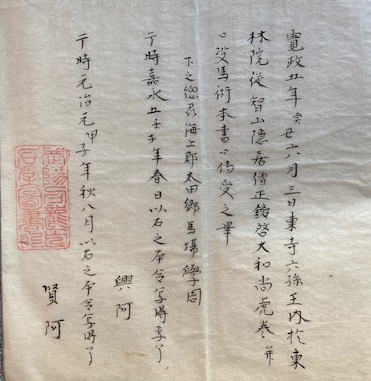 寛政五年癸丑六月三日東寺六孫王内於東
林院従智山隠居僧正鑁啓大和尚虎巻并
馬術本書口傳受之畢
下之總州海上郡太田郷馬場學周
于時嘉永五壬子年春日以右之本令写得了
興阿
于時元治元甲子年秋八月以右之本令写得了
賢阿